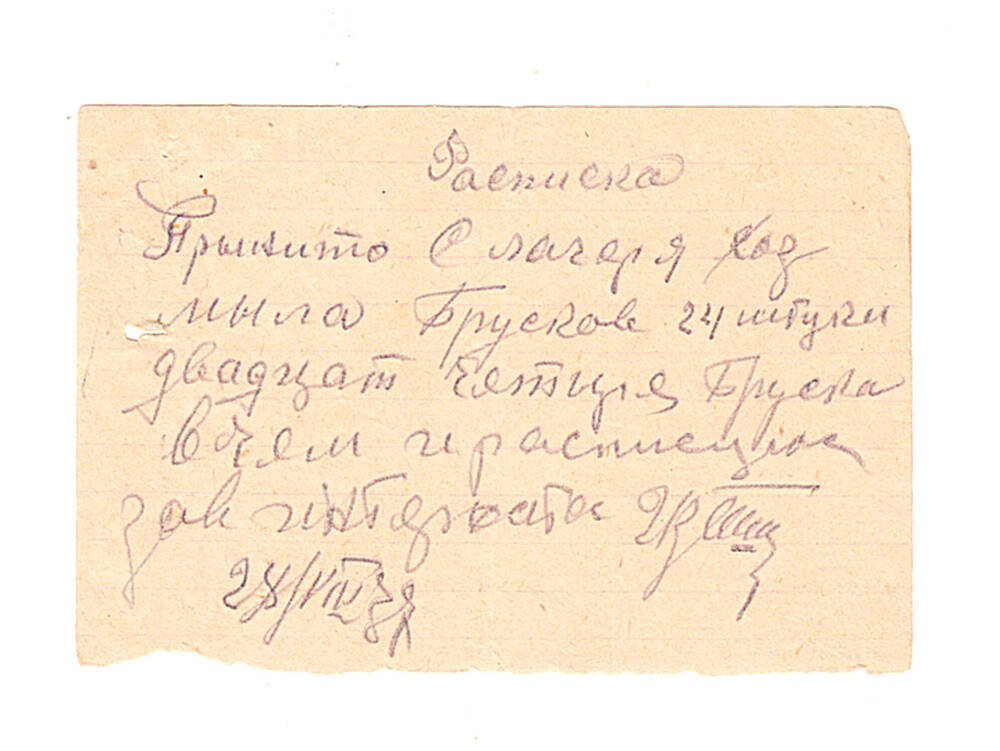 Расписка
Прынито С лагеря хоз
мыла Брусков 24 штуки
двадцат четиря Бруска
в чем и расписуюс
зав интерната